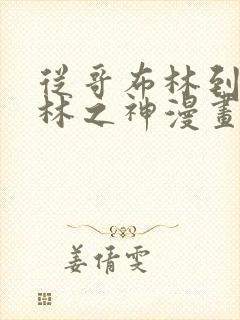 從哥布林到
林之神漫畫
姜倩雯